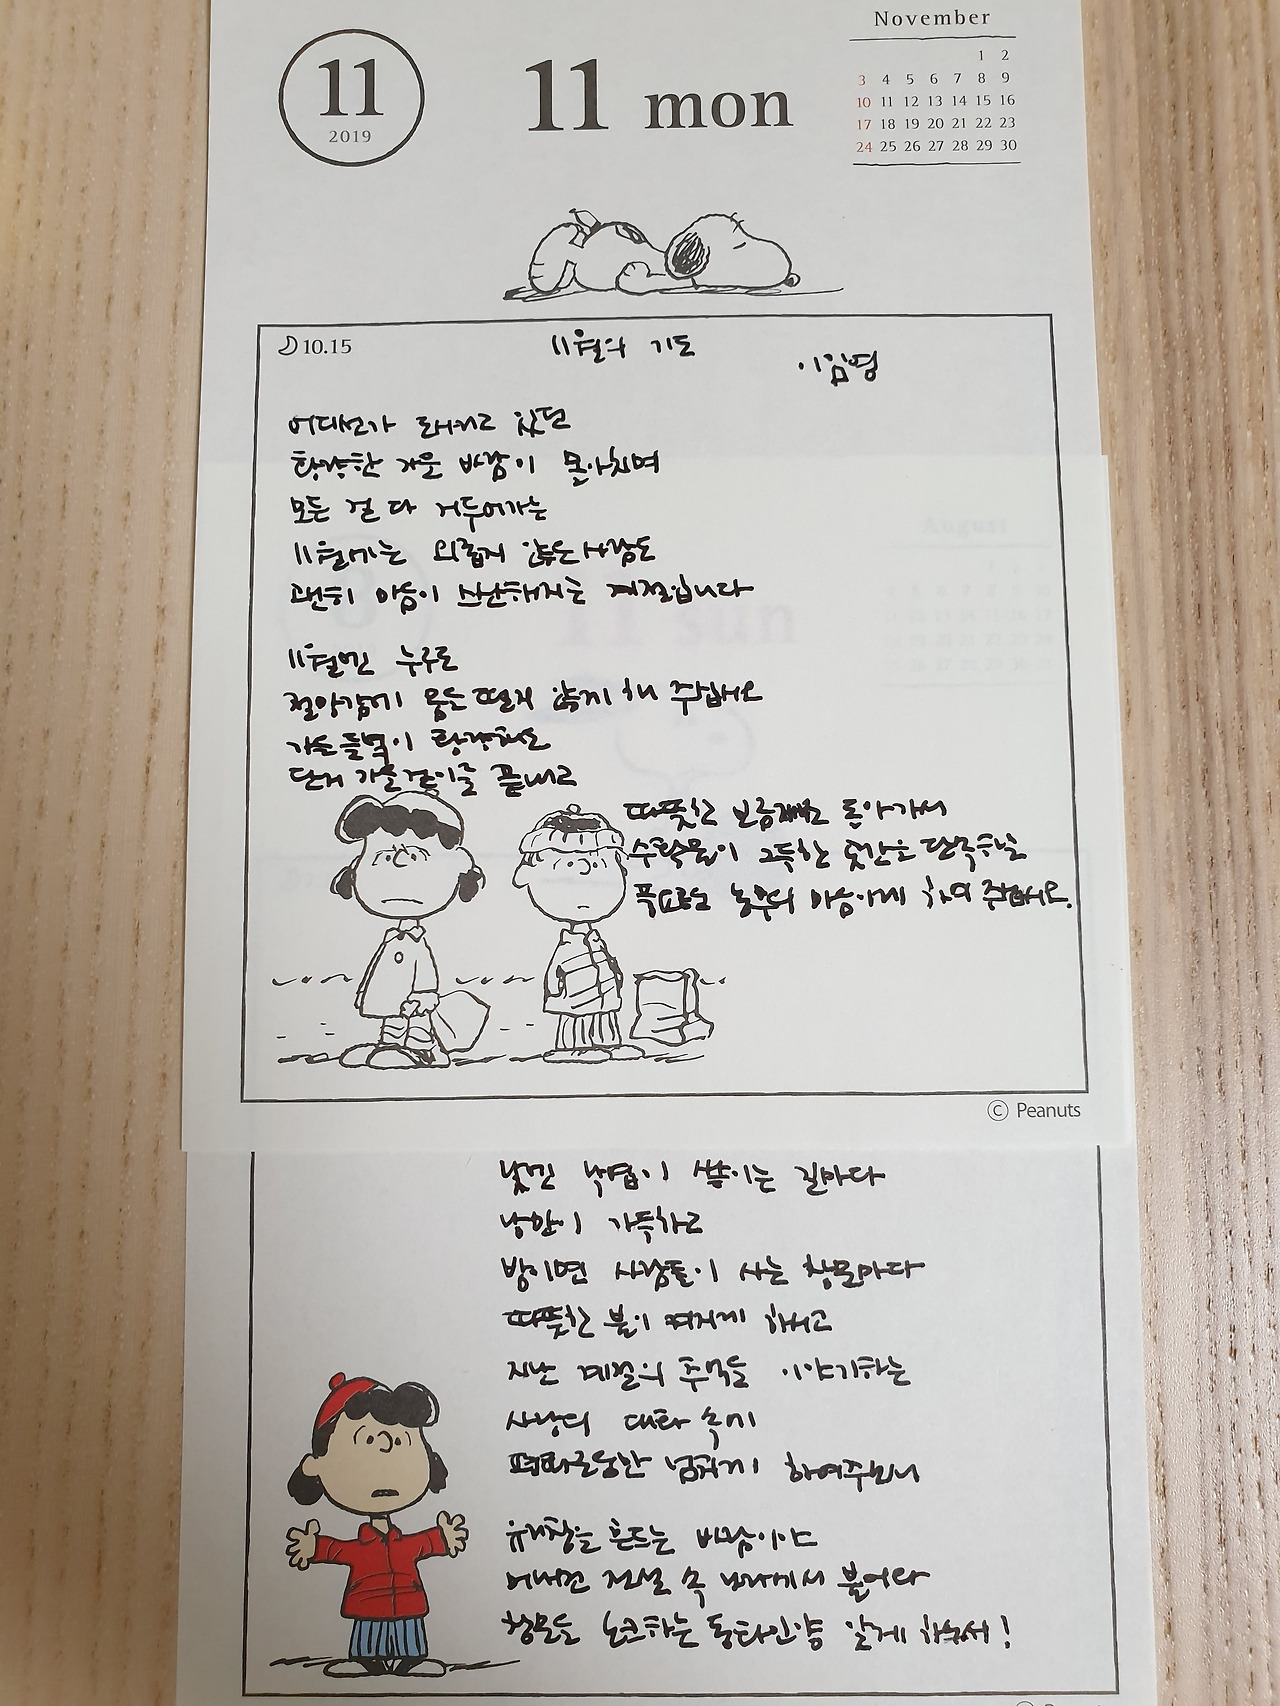 11
2019
11 mon
November
1 2
3 4 5 6 7 8 9
10 11 12 13 14 15 16
17 18 19 20 21 22 23
24 25 26 27 28 29 30
10.15
11월의 기도
이임영
어디선가 도사리고 있던
황량한 가을 바람이 몰아치며
모든 걸 다 거두어가는
11월에는 외롭지 않은 사람도
괜히 마음이 스산해지는 계절입니다
11월엔 누구도
절망감에 몸을 떨지 않게 해 주십시오
가을 들녘이 황량해도
단지 가을걷이를 끝내고
따뜻한 보금자리로 돌아가서
수확물이 그득한 곳간을 단속하는
풍요로운 농부의 마음이게 하여 주십시오.
August
11 sun
© Peanuts
낮엔 낙엽이 쌓이는 길마다
낭만이 가득하고
밤이면 사람들이 사는 창문마다
따뜻한 불이 켜지게 하시고
지난 계절의 추억을 이야기하는
사랑의 대화 속에
평화로움만 넘치게 하여주소서
유리창을 흔드는 바람이야
머나먼 전설 속 나라에서 불어와
창문을 노크하는 동화인양 알게 하소서!